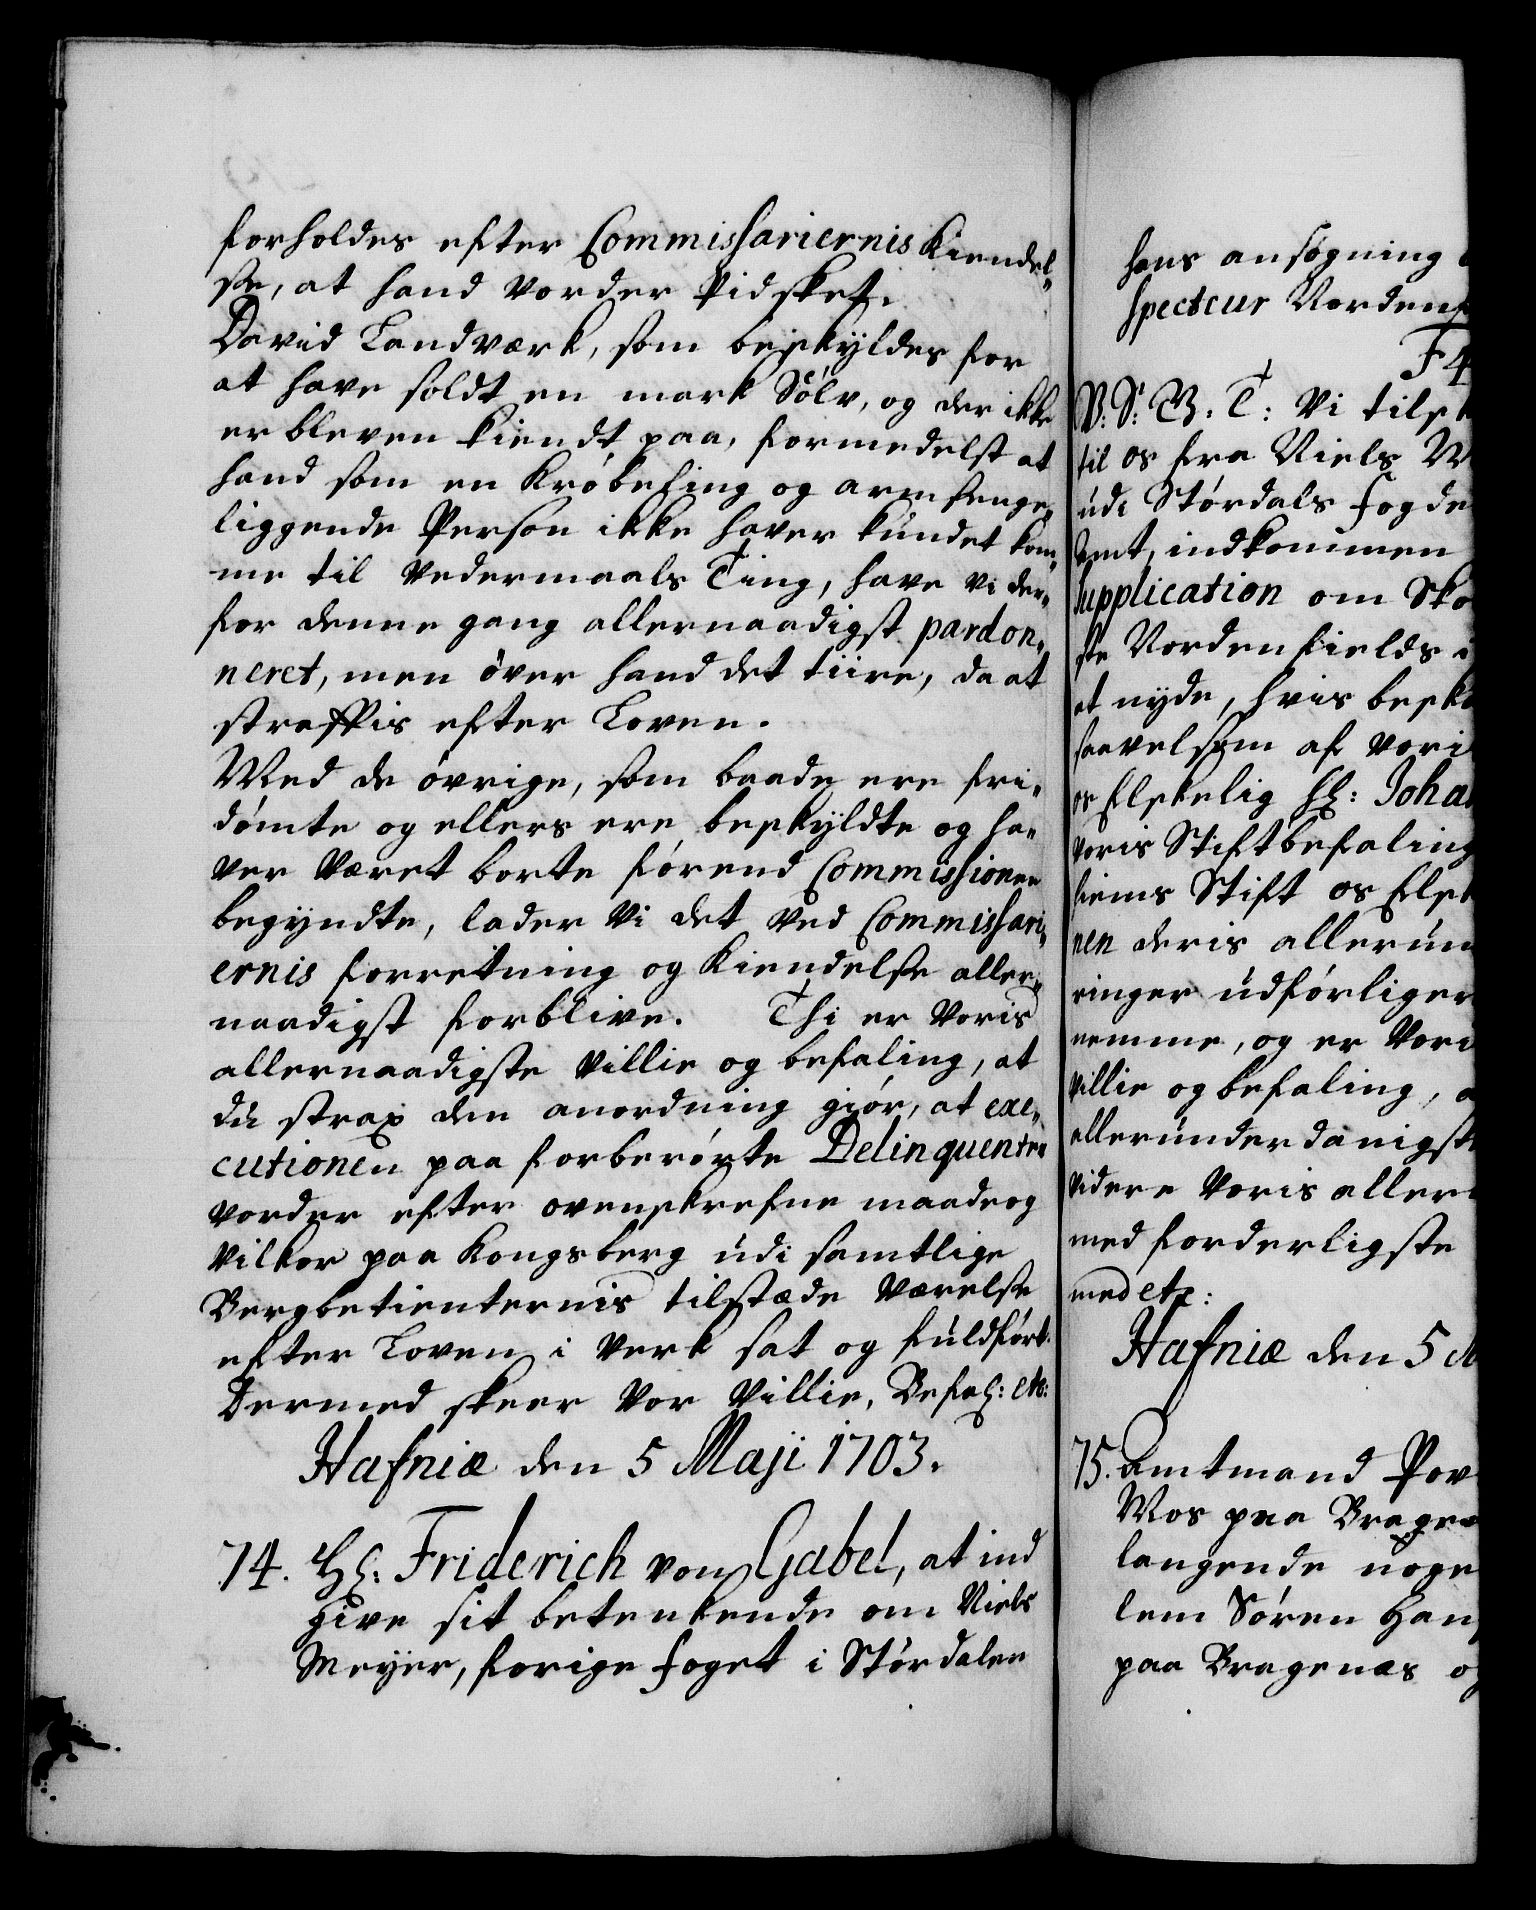 forholdes efter Commissariernis Kiendel-
se, at hand vorder Pidsket.
David Landværk, som beskyldes for
at have soldt en mark Sölv, og der ikke
er bleven kiendt paa, formedelst at
hand som en Kröbeling og arm senge-
liggende Person ikke haver kundet kom-
me til Vedermaals Ting, have vi der-
for denne gang allernaadigst pardon-
neret, men över hand det tiire, da at
straffis efter Loven.
Med de övrige, som baade ere fri-
dömte og ellers ere beskyldte og ha-
ver Været borte förend Commissionen
begyndte, lader Vi det ved Commissari-
ernis forretning og Kiendelse aller-
naadigst forblive. Thi er Voris
allernaadigste Villie og befaling, at
du strax den anordning giör, at exe-
cutionen paa forberörte Delinquenter
vorder efter ovenskrefne maade og
Vilkor paa Kongsberg udi samtlige
Bergbetienternis tilstæde Værelse
efter Loven i Verk sat og fuldfört.
Dermed skeer Vor Villie, Befal: etc:
Hafniæ den 5 Maji 1703.
74. Hl: Friderich von Gabel, at ind
give sit betenkende om Niels
Meyer, forige foget i Stördalen
hans ansögning
specteur Norden
F 4
V. S. G. T: Vi tilsk
til os fra Niels M
udi Stördals fogde
Amt, indkommen
Supplication om Sko
ste Nordenfields i
at nyde, hvis besk
saavelsom af vori
os Elskelig Hl: Joha
voris Stiftbefaling
hiems Stift os Elsk
nen deris allerun
ringer udförliger
nemme, og er Vori
Villie og befaling, a
allerunderdanigst
videre Voris aller
med forderligste
med etc:
Hafniæ den 5 M
75. Amtmand Pov
Mos paa Bragen
langende noge
lem Sören Han
paa Bragenæs og